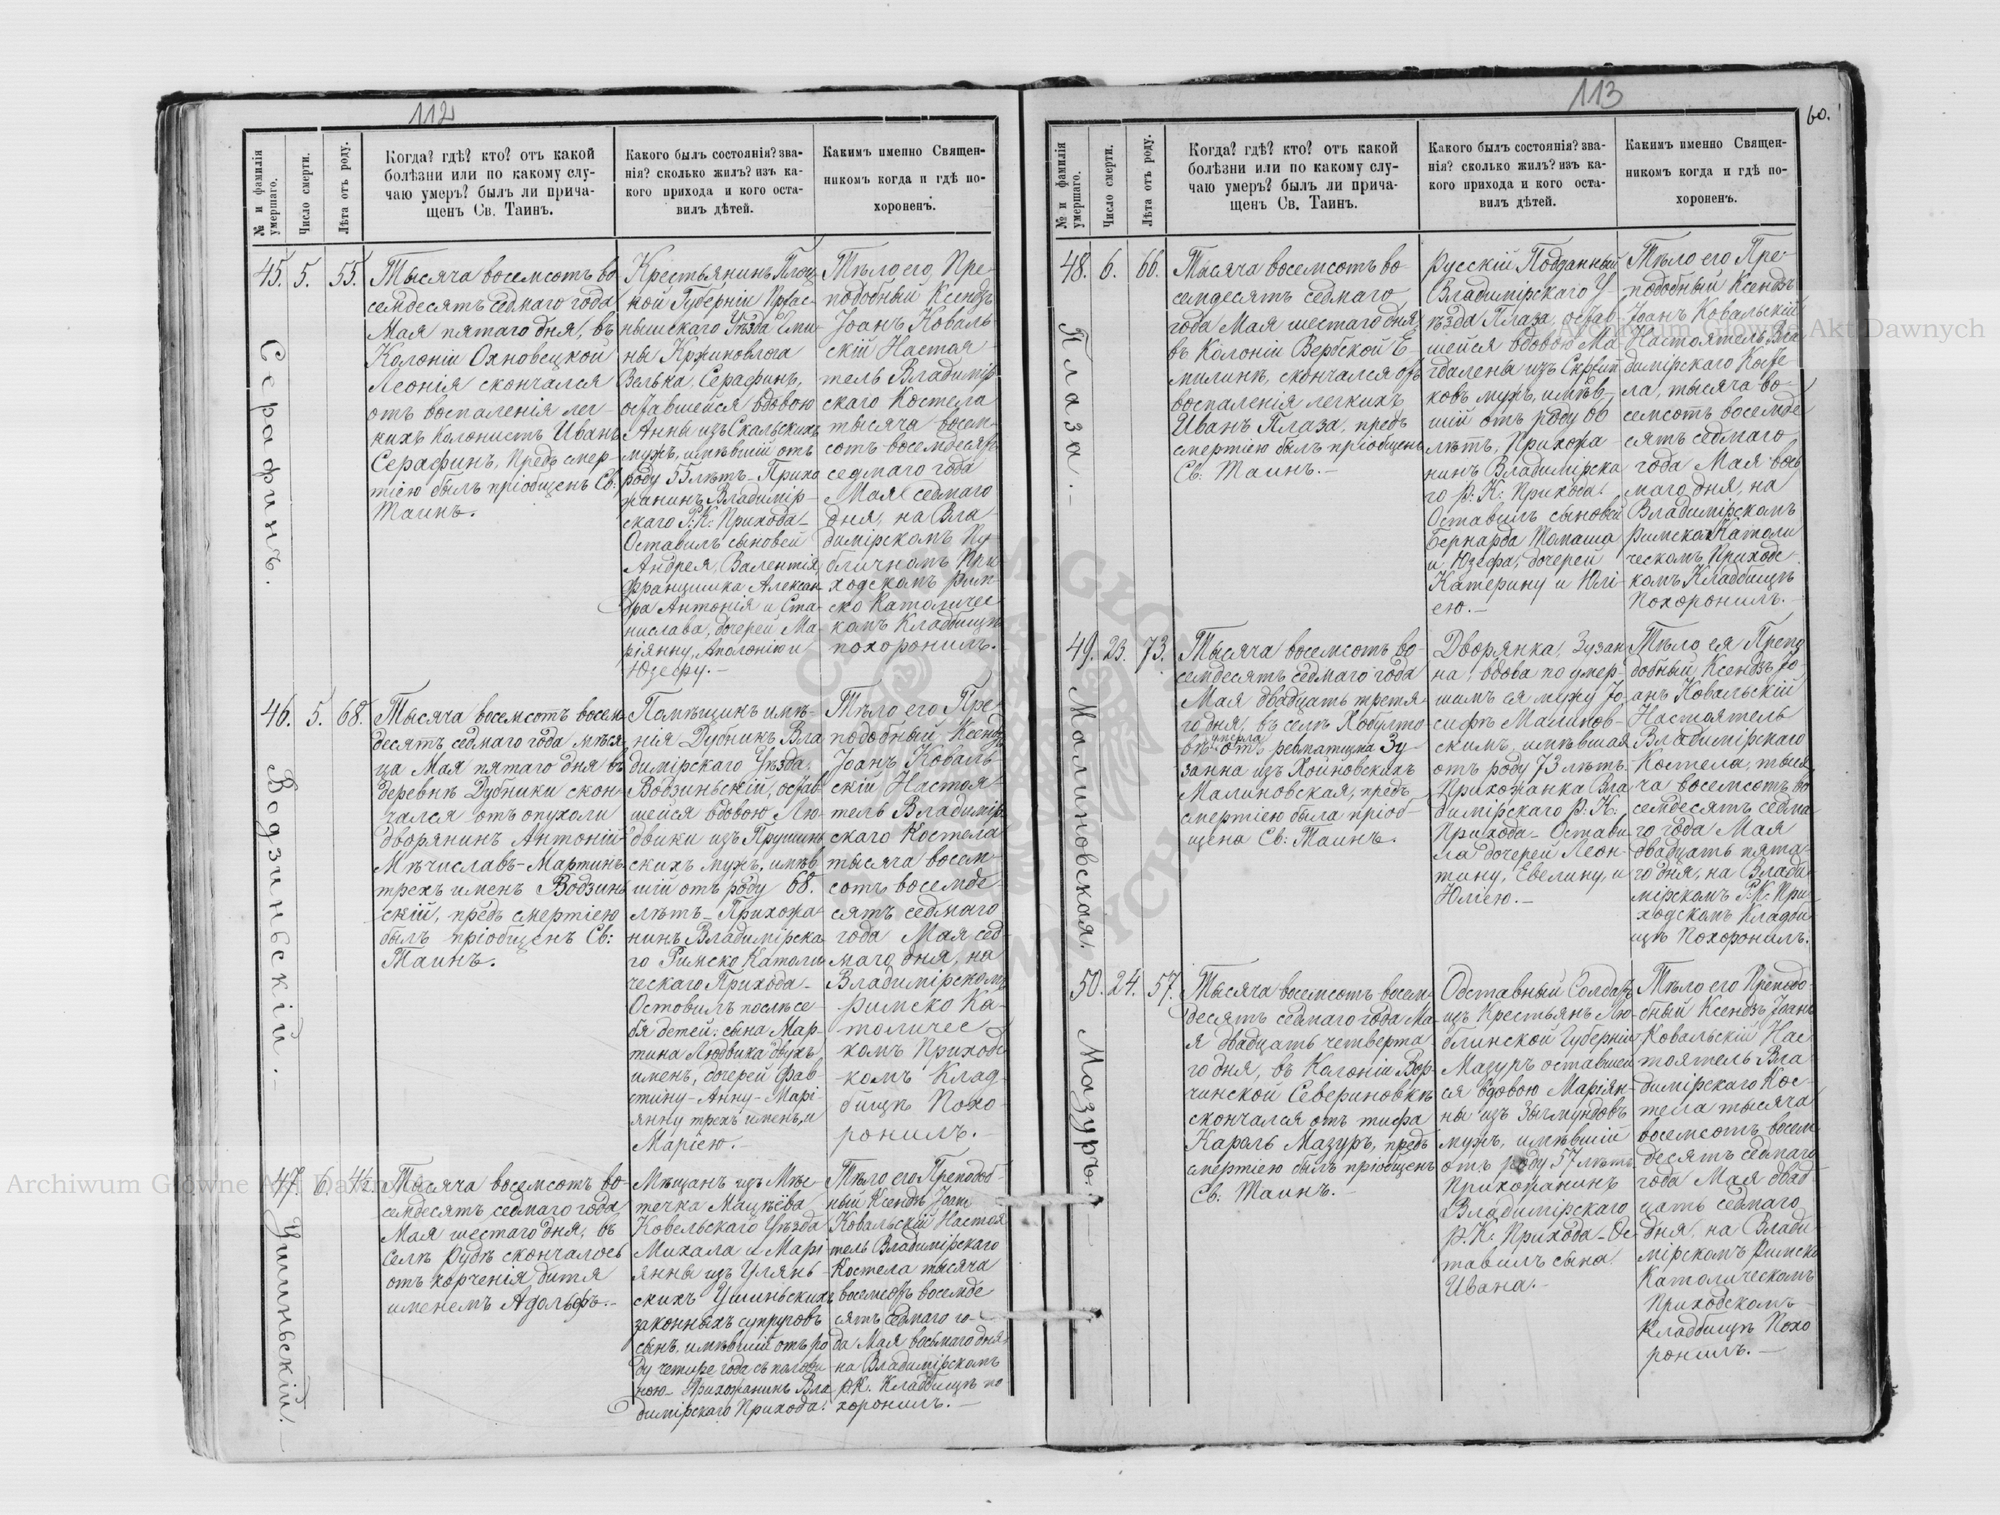 112
№ и фамилія умершаго.
Число смерти.
Лѣта отъ роду.
Когда? гдѣ? кто? отъ какой
болѣзни или по какому слу-
чаю умеръ? былъ ли прича-
щенъ Св. Таинъ.
Какого былъ состоянія? зва-
нія? сколько жилъ? изъ ка-
кого прихода и кого оста-
вилъ дѣтей.
Какимъ именно Священ-
никомъ когда и гдѣ по-
хороненъ.
45.
Серафинъ.
5.
55.
Тысяча восемсотъ во
семдесятъ седмаго года
Мая пятаго дня, въ
Колоніи Охновецкой
Леонія скончался
отъ воспаленія лег-
кихъ Колонистъ Иванъ
Серафинъ, предъ смер-
тію былъ пріобщенъ Св.
Таинъ.
Крестьянинъ Плоц
кой Губерніи Прас-
нышскаго Уѣзда Гми-
ны Кржиновлога
Велька, Серафинъ,
оставшейся вдовою
Анны изъ Скальскихъ
мужъ, имѣвшій отъ
роду 55 лѣтъ. Прихо
жанинъ Владимір-
скаго Р. К. Прихода –
Оставилъ сыновей
Андрея, Валентія
Францишка Алексан
дра Антонія и Ста-
нислава, дочерей Ма-
ріянну, Аполонію и
Юзефу. –
Тѣло его, Пре-
подобный Ксендзъ
Іоанъ Коваль
скій Настоя
тель Владимір
скаго Костела
тысяча восем
сотъ восемдесятъ
седмаго года
Мая седмаго
дня, на Вла
димірскомъ Пу
бличномъ При
ходскомъ рим
ско Католичес
комъ Кладбищѣ
похоронилъ.
46.
Водзиньскій. –
5.
68.
Тысяча восемсотъ восем
десятъ седмаго года мѣся
ца Мая пятаго дня въ
деревнѣ Дубники скон-
чался отъ опухоли
дворянинъ Антоній-
Мѣчиславъ-Мартинъ
трехъ именъ Водзинь
скій, предъ смертію
былъ пріобщенъ Св:
Таинъ.
Помѣщикъ имѣ-
нія Дубникъ Вла
димірскаго Уѣзда,
Водзиньскій, остав
шейся вдовою Лю-
двики изъ Прушин
скихъ мужъ, имѣв
шій отъ роду 68.
лѣтъ – Прихожа-
нинъ Владимірска
го Римско Католи
ческаго Прихода –
Остовилъ послѣ се-
бя детей: сына Мар-
тина Людвика двухъ
именъ, дочерей Фав-
стину-Анну-Марі-
янну трехъ именъ и
Марію. –
Тѣло его Пре
подобный Ксендзъ
Іоанъ Коваль
скій Настоя-
тель Владимір
скаго Костела
тысяча восем
сотъ восемде
сятъ седмаго
года Мая сед-
маго дня, на
Владимірскомъ
римско Ка-
толичес
комъ Приходс
комъ Клад-
бищѣ Похо-
ронилъ. –
47.
Ушиньскій. –
6.
4½
Тысяча восемсотъ во-
семдесятъ седмаго года
Мая шестаго дня, въ
Селѣ Рудѣ скончалось
отъ корченія дитя
именемъ Адольфъ. –
Мѣщанъ изъ Мѣс
течка Мацѣева
Ковельскаго Уѣзда
Михала и Марі
янны изъ Улянь-
скихъ Ушиньскихъ
законныхъ супруговъ
сынъ, имѣвшій отъ ро
ду четыре года съ полови
ною – Прихожанинъ Вла
димірскаго Прихода.
Тѣло его Преподоб-
ный Ксендзъ Іоанъ
Ковальскій Настоя
тель Владимірскаго
Костела тысяча
восемсотъ восемде
сятъ седмаго го-
да Мая восьмаго дня
на Владимірскомъ
р.К. Кладбищѣ по
хоронилъ. –
113
60.
№ и фамилія умершаго.
Число смерти.
Лѣта отъ роду.
Когда? гдѣ? кто? отъ какой
болѣзни или по какому слу-
чаю умеръ? былъ ли прича-
щенъ Св. Таинъ.
Какого былъ состоянія? зва-
нія? сколько жилъ? изъ ка-
кого прихода и кого оста-
вилъ дѣтей.
Какимъ именно Священ-
никомъ когда и гдѣ по-
хороненъ.
48.
Плаза. –
6.
66.
Тысяча восемсотъ во-
семдесятъ седмаго
года Мая шестаго дня,
въ Колоніи Вербской Е-
милинѣ, скончался отъ
воспаленія легкихъ
Иванъ Плаза, предъ
смертію былъ пріобщенъ
Св. Таинъ. –
Русскій Подданный
Владимірскаго У-
ѣзда Плаза, остав-
шейся вдовою Ма
гдалены изъ
ковъ мужъ, имѣв
шій отъ роду 66
лѣтъ, Прихожа-
нинъ Владимірска
го Р. К. Прихода.
Оставилъ сыновей
Бернарда Томаша
и Юзефа, дочерей
Катерину и Юлі-
ею. –
Тѣло его Пре-
подобный Ксендзъ
Іоанъ Ковальскій
Настоятель Вла
димірскаго Косте
ла, тысяча во-
семсотъ восемде
сятъ седмаго
года Мая вось
маго дня, на
Владимірскомъ
римско Католи
ческомъ Приходс
комъ Кладбищѣ
Похоронилъ. –
49.
Малиновская.
23.
73.
Тысяча восемсотъ во-
семдесятъ седмаго года
Мая двадцать третя
го дня, въ селѣ Хобулто
вѣ умерла отъ ревматизма Зу
занна изъ Хойновскихъ
Малиновская, предъ
смертію была пріоб
щена Св: Таинъ. –
Дворянка, Зузан
на вдова по умер-
шимъ ея мужу Іо
сифѣ Малинов-
скимъ, имѣвшая
отъ роду 73 лѣтъ.
Прихожанка Вла
димірскаго Р. К.
Прихода – Остави-
ла дочерей Леон-
тину, Евелину, и
Юлію. –
Тѣло ея Препо
добный Ксендзъ Іо-
анъ Ковальскій
Настоятель
Владимірскаго
Костела, тыся
ча восемсотъ во
семдесятъ седма
го года Мая
двадцать пята-
го дня, на Влади
мірскомъ Р. К. При-
ходскомъ Кладби
щѣ Похоронилъ.
50.
Мазуръ. –
24.
57.
Тысяча восемсотъ восем
десятъ седмаго года Ма-
я двадцать четверта-
го дня, въ Каголіи Вор-
чинской Севериновкѣ
скончался отъ тифа
Кароль Мазуръ, предъ
смертію былъ пріобщенъ
Св: Таинъ. –
Одставный Солдатъ
изъ Крестьянъ Лю-
блинской Губерніи
Мазуръ оставшей
ся вдовою Маріян-
ны изъ Зыгмундовъ
мужъ, имѣвшій
отъ роду 57 лѣтъ.
Прихожанинъ
Владимірскаго
Р. К. Прихода – Ос
тавилъ сына
Ивана. –
Тѣло его Преподо-
бный Ксендзъ Іоанъ
Ковальскій Нас
тоятель Вла
димірскаго Кос-
тела тысяча
восемсотъ восем
десятъ седмаго
года Мая двад
цать седмаго
дня, на Влади-
мірскомъ Римско
Католическомъ
Приходскомъ
Кладбищѣ Похо
ронилъ. –
Archiwum Główne Akt Dawnych
Archiwum Główne Akt Dawnych